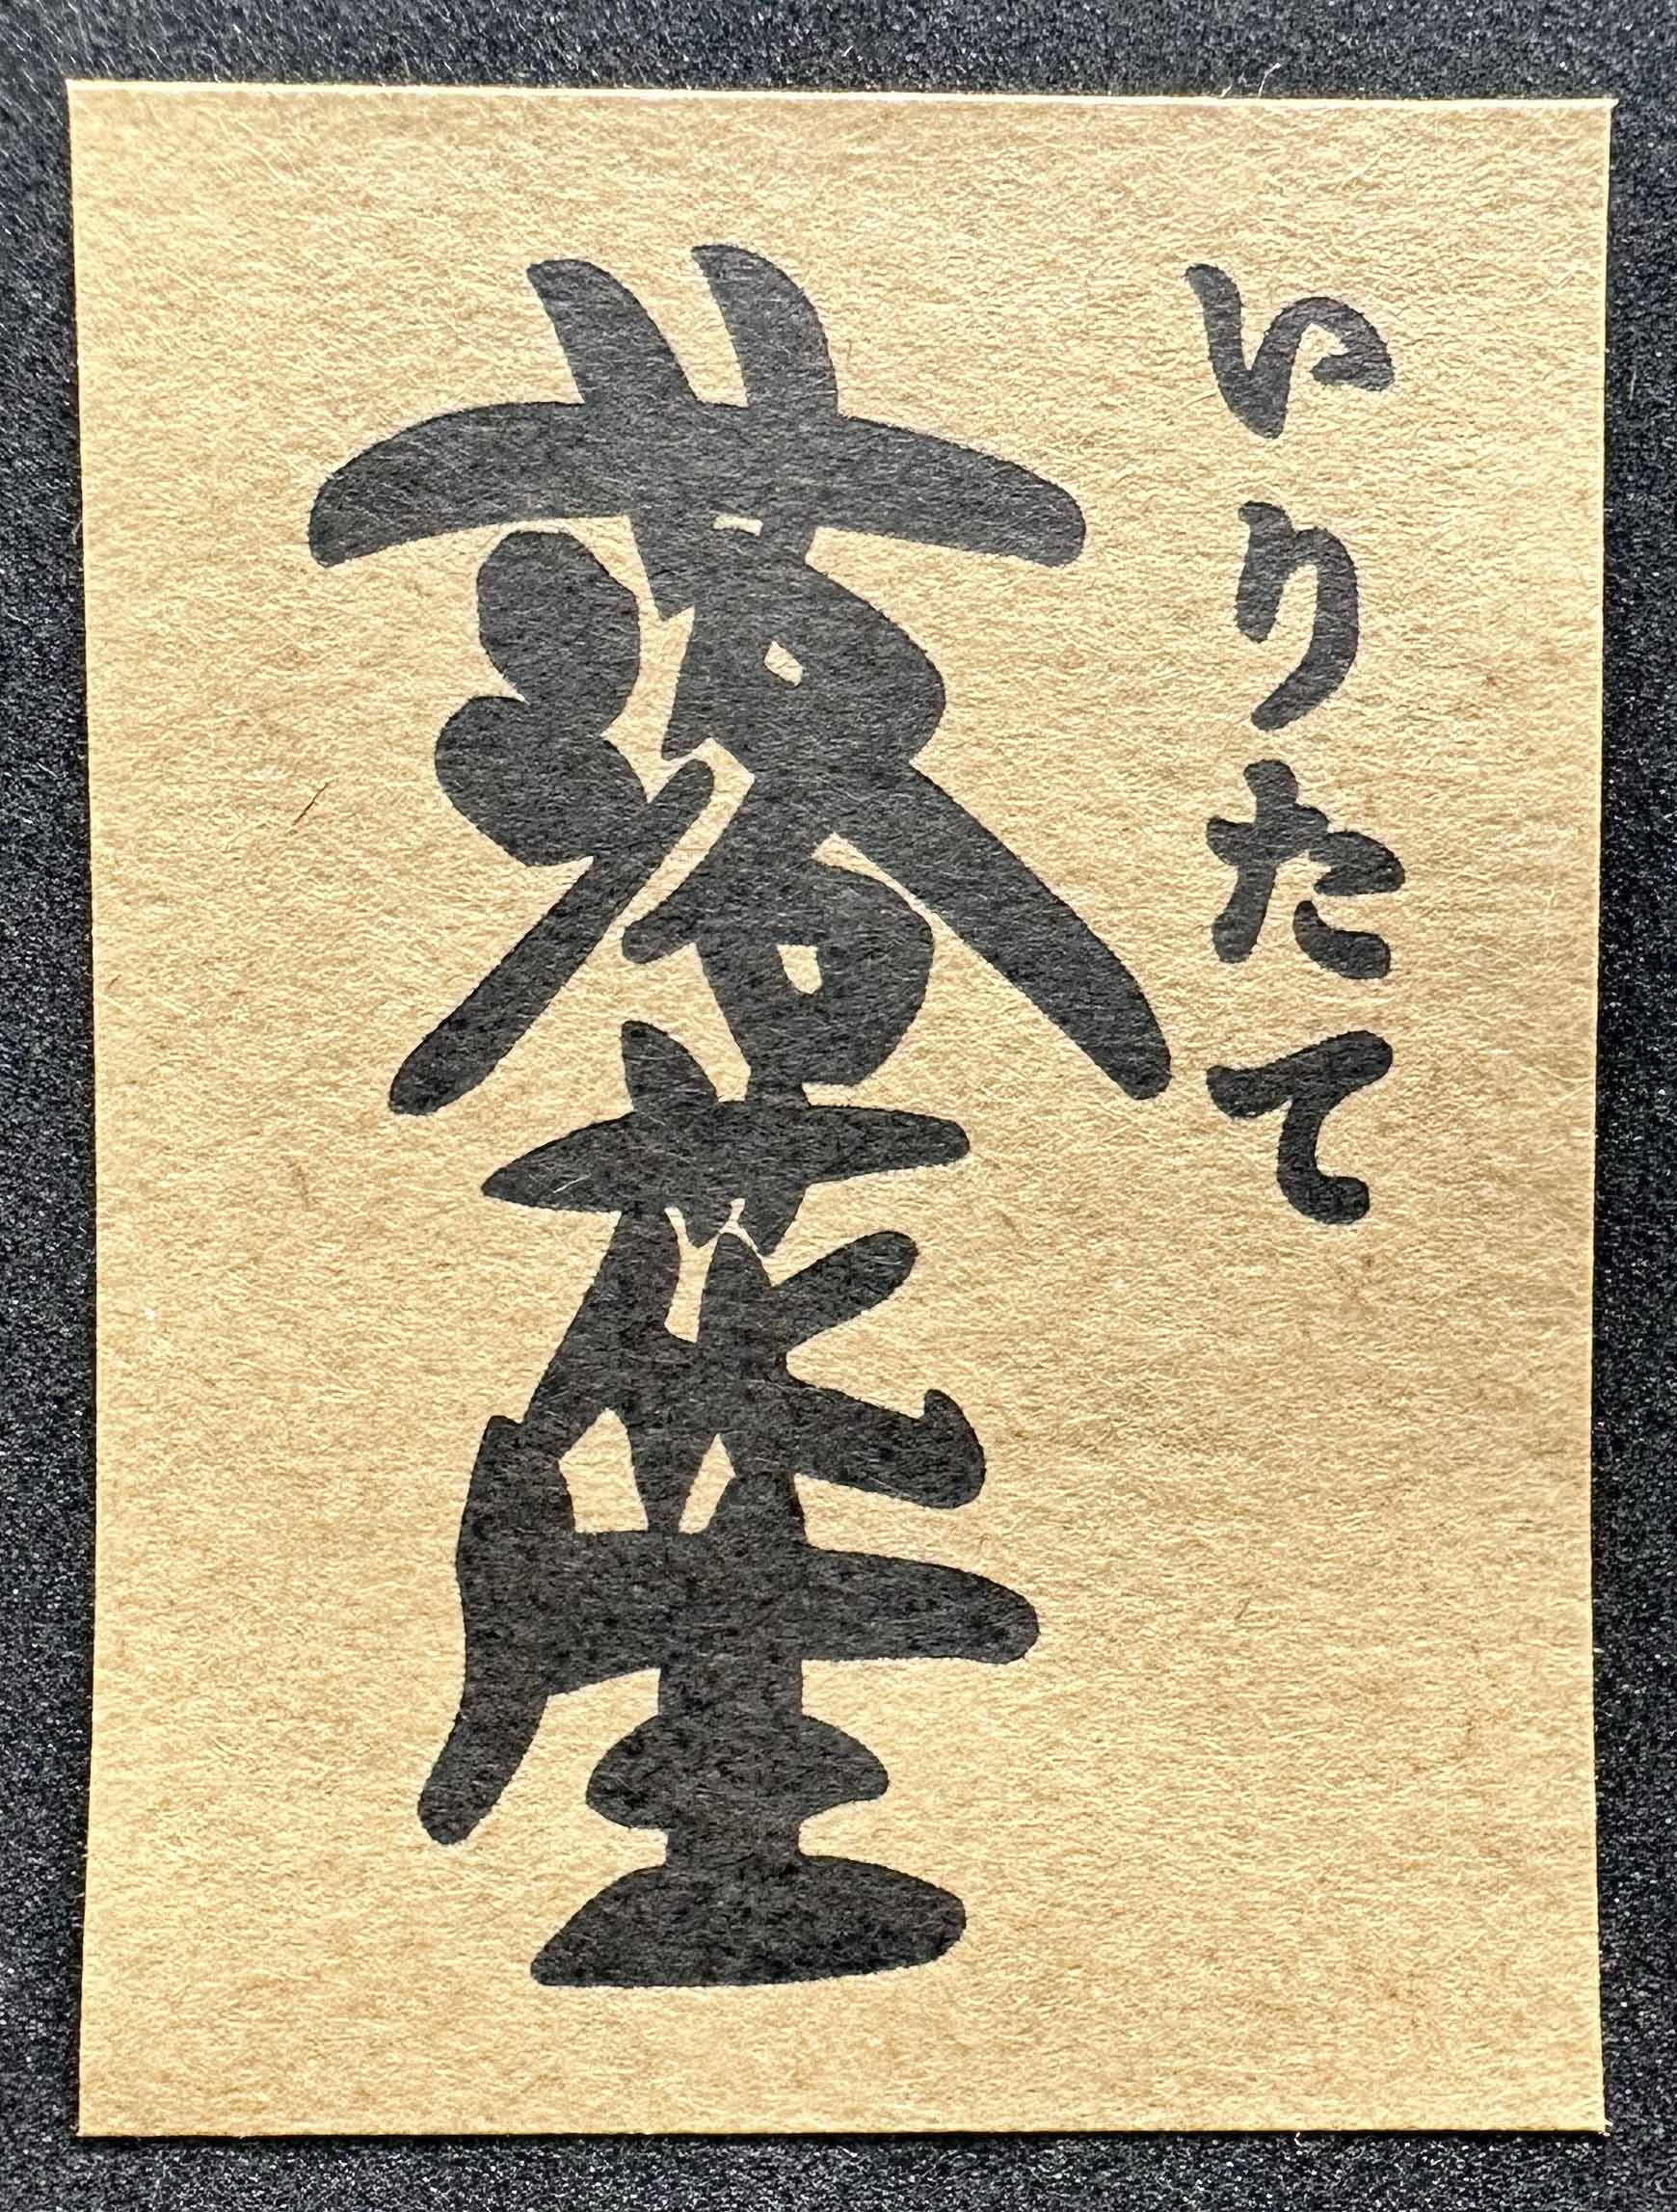 いりたて
落花生